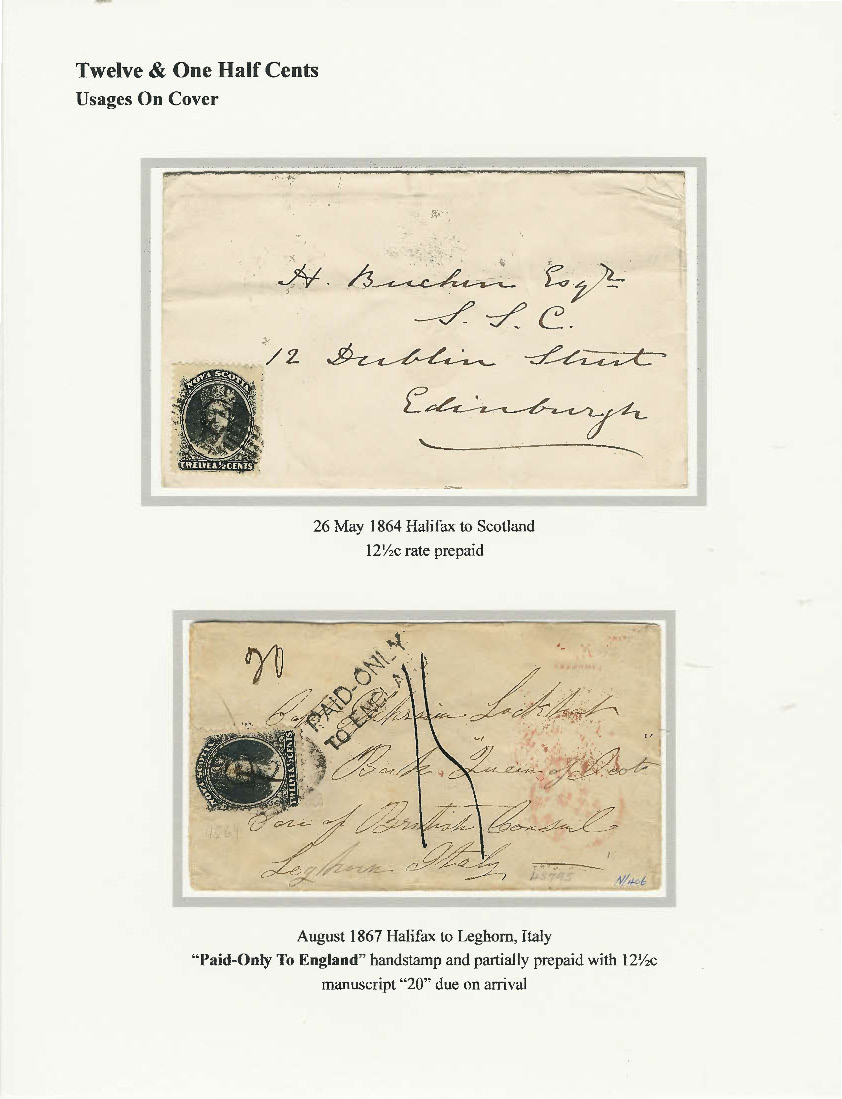 Twelve & One Half Cents
Usages On Cover
H. Buchan Esqre
S. S. C.
12 Dublin Street
Edinburgh
NOVA SCOTIA
TWELVE & ½ CENTS
26 May 1864 Halifax to Scotland
12½c rate prepaid
20
PAID-ONLY
TO ENGLAND
Capt Lockhart
Bark "Queen of Scots"
Care of British Consul
Leghorn Italy
NOVA SCOTIA
1864
45795
N/406
August 1867 Halifax to Leghorn, Italy
“Paid-Only To England” handstamp and partially prepaid with 12½c
manuscript “20” due on arrival